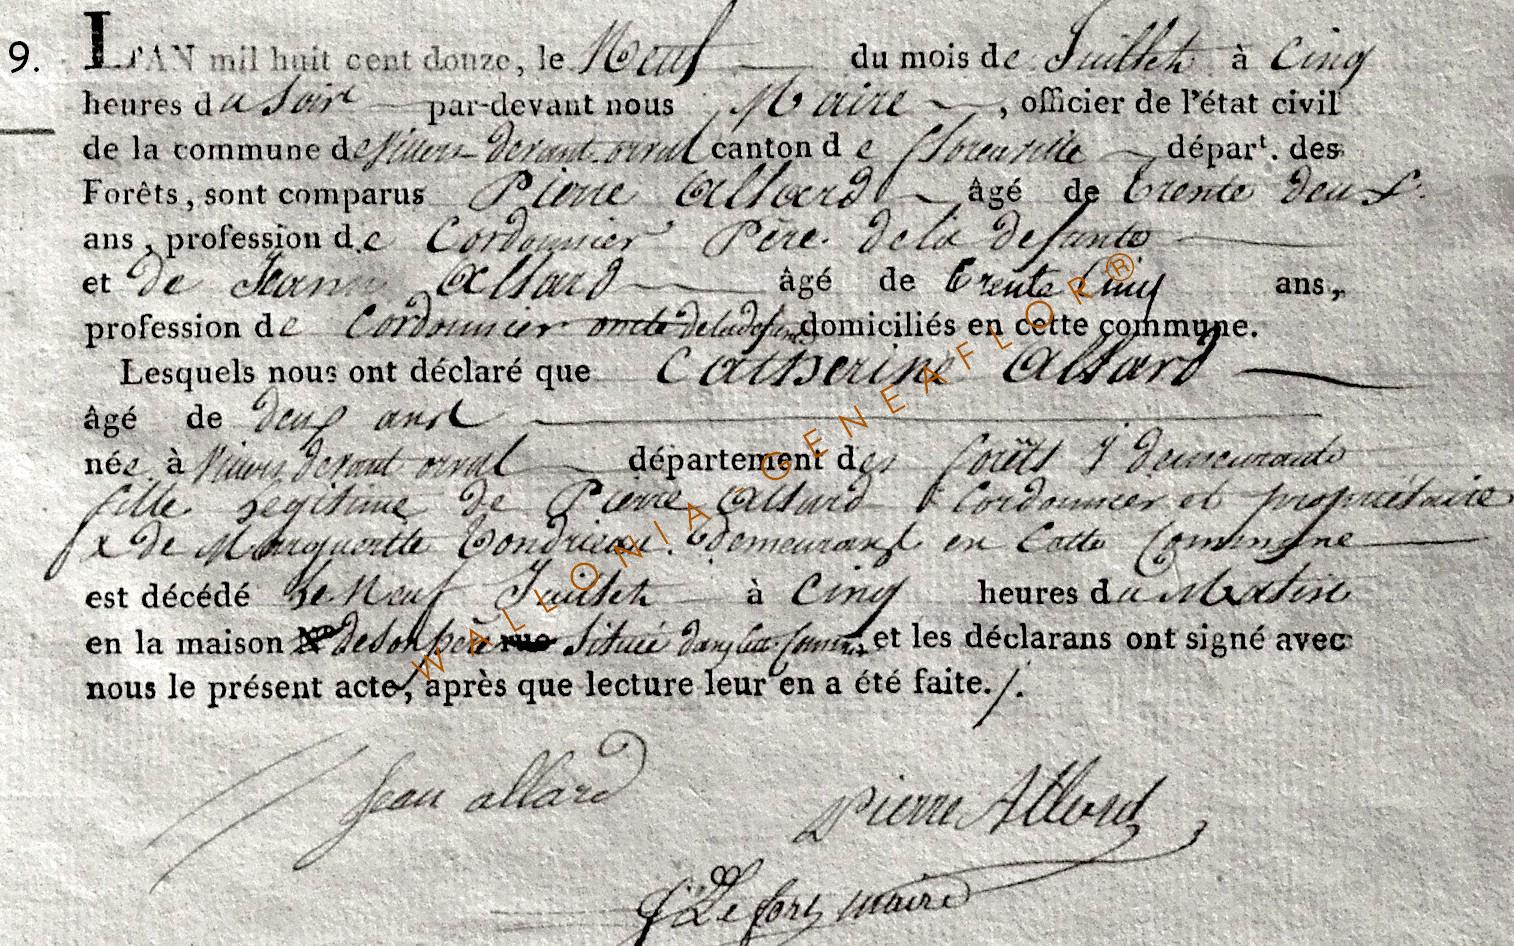 9. L'AN mil huit cent douze, le Neuf du mois de Juillet à Cinq
heures du Soir par-devant nous Maire, officier de l'état civil
de la commune de Villers devant orval canton de florenville départ. des
Forêts, sont comparus Pierre Allard âgé de trente deux
ans, profession de Cordonnier Père de la defunte
et de Jean Allard âgé de trente Cinq ans,
profession de Cordonnier oncle de la defunte domiciliés en cette commune.
Lesquels nous ont déclaré que Catherine Allard
âgé de deux ans
née à Villers devant orval département des forêts y demeurante
fille legitime de Pierre Allard Cordonnier et propriétaire
& de Margueritte Tondrieau demeurant en Cette Commune
est décédé le Neuf Juillet à Cinq heures du Matin
en la maison de son pere rue Située dans cette Commune et les déclarans ont signé avec
nous le présent acte, après que lecture leur en a été faite./.
Jean allard
Pierre Allard
Lefort maire
WALLONIA-GENEAFLOR®